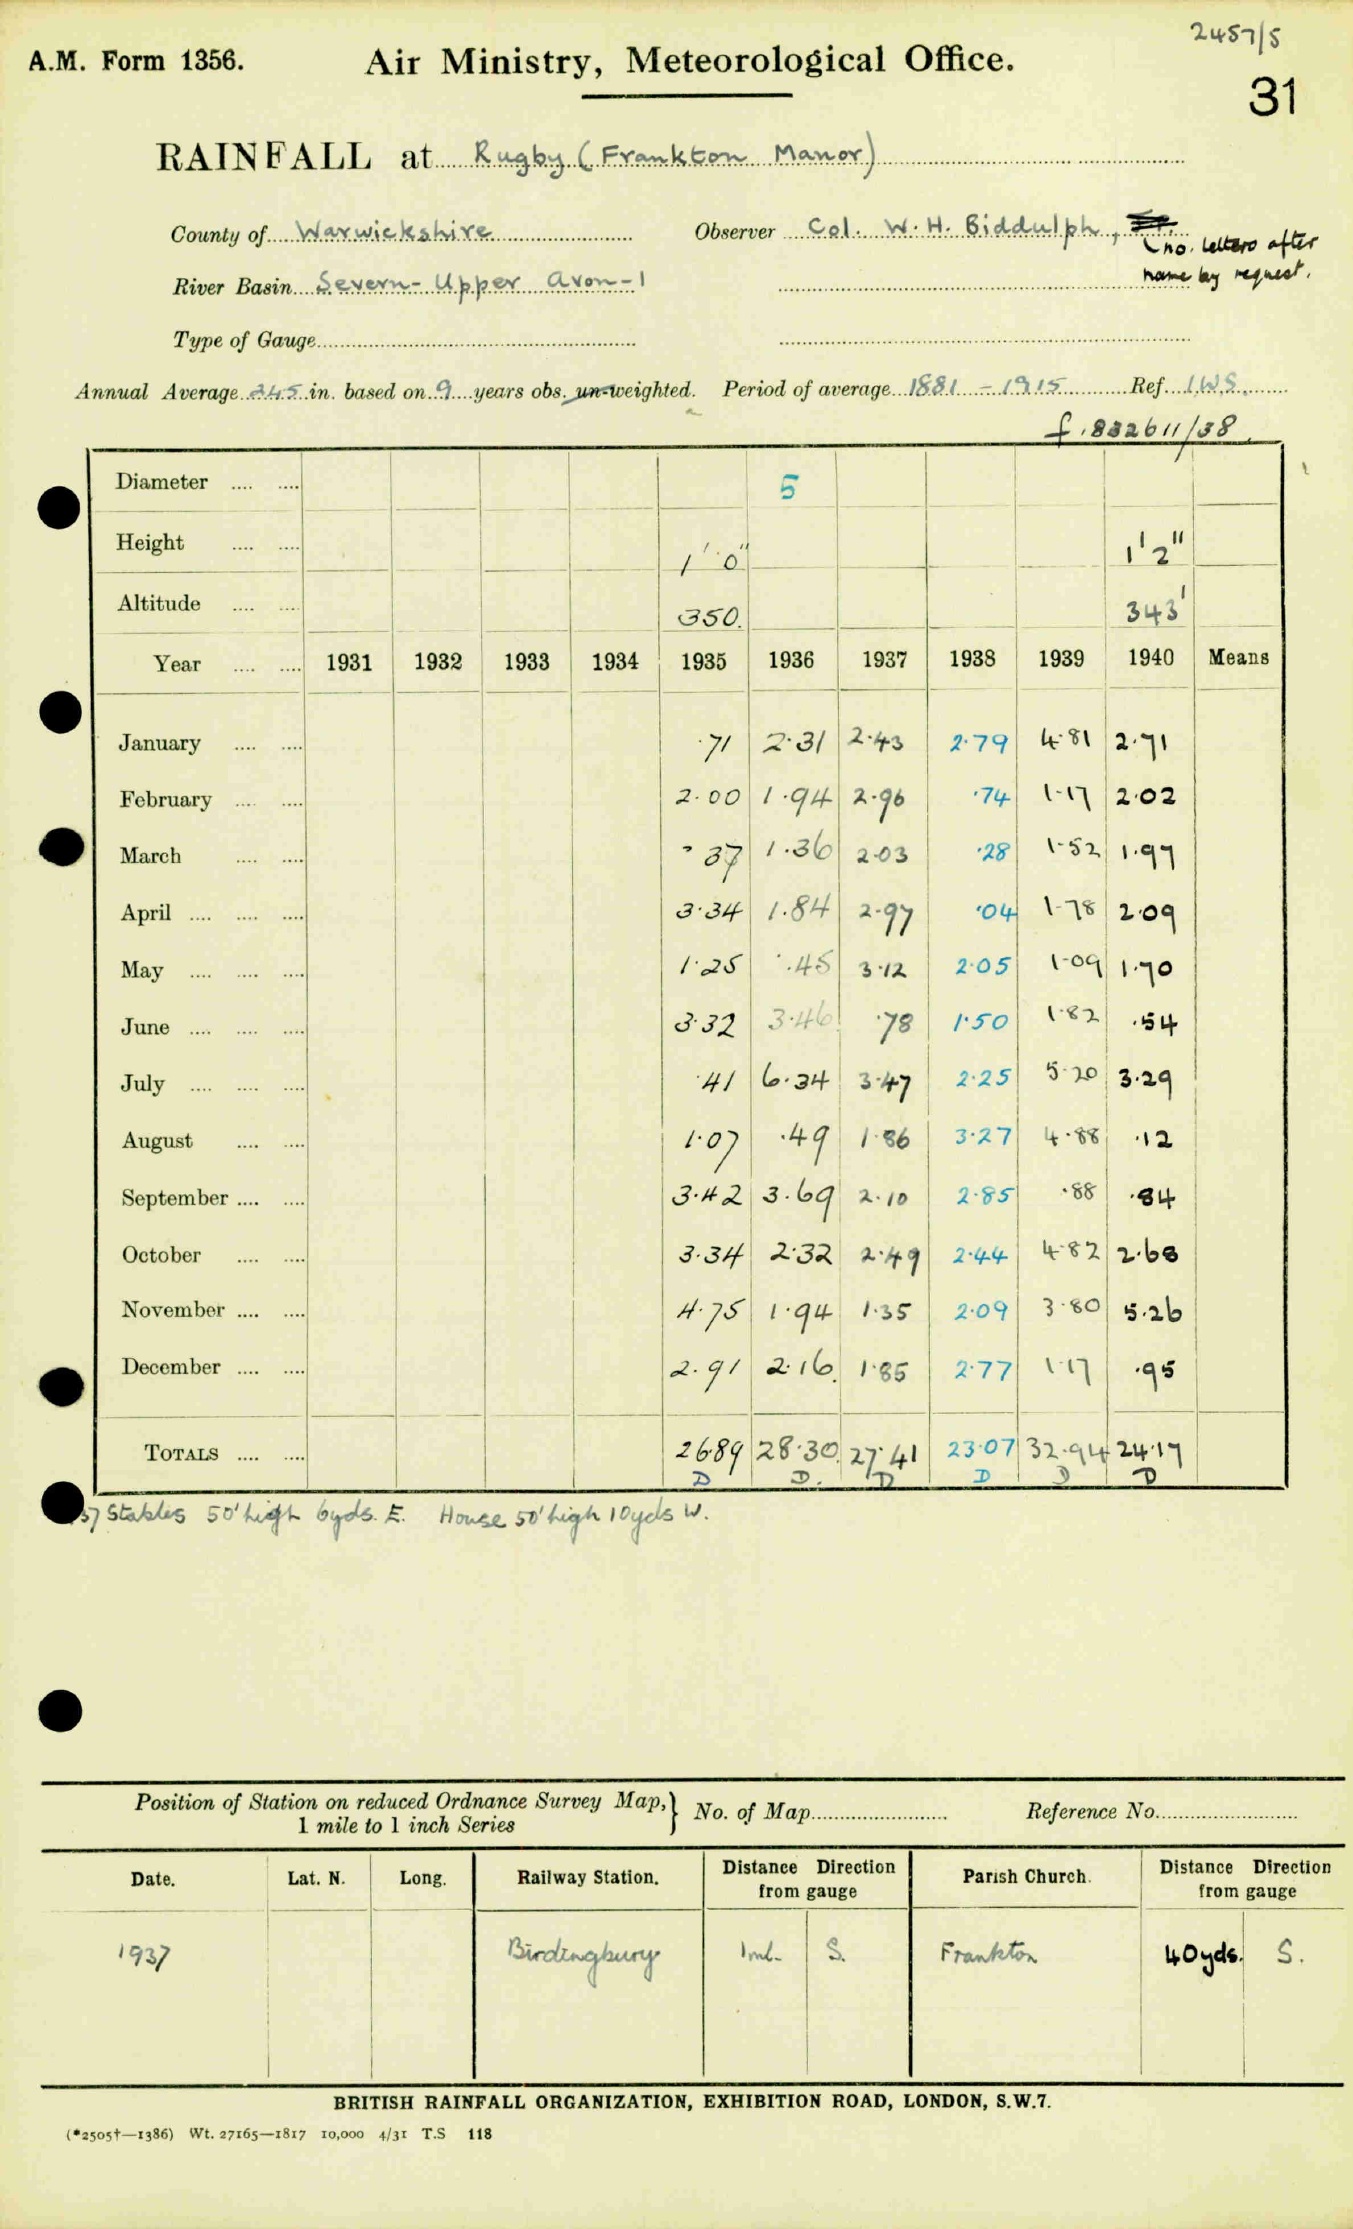 2457/5
A.M. Form 1356. Air Ministry, Meteorological Office.
31
RAINFALL at Rugby (Frankton Manor)
County of Warwickshire Observer Col. W. H. Biddulph,
(no letters after
name by request.
River Basin Severn - Upper Avon - 1
Type of Gauge
Annual Average 245 in. based on 9 years obs. un-weighted. Period of average 1881 - 1915 Ref. I.W.S.
f.832611/38
Diameter 5
Height 1' 0" 1' 2"
Altitude 350. 343'
Year 1931 1932 1933 1934 1935 1936 1937 1938 1939 1940 Means
January .71 2.31 2.43 2.79 4.81 2.71
February 2.00 1.94 2.96 .74 1.17 2.02
March .37 1.36 2.03 .28 1.52 1.97
April 3.34 1.84 2.97 .04 1.78 2.09
May 1.25 .45 3.12 2.05 1.09 1.70
June 3.32 3.46 .78 1.50 1.82 .54
July .41 6.34 3.47 2.25 5.20 3.29
August 1.07 .49 1.86 3.27 4.88 .12
September 3.42 3.69 2.10 2.85 .88 .84
October 3.34 2.32 2.49 2.44 4.82 2.68
November 4.75 1.94 1.35 2.09 3.80 5.26
December 2.91 2.16 1.85 2.77 1.17 .95
TOTALS 26.89 28.30 27.41 23.07 32.94 24.17
D D. D D D D
37 Stables 50' high 6yds. E. House 50' high 10yds W.
Position of Station on reduced Ordnance Survey Map, } No. of Map Reference No.
1 mile to 1 inch Series
Date. Lat. N. Long. Railway Station. Distance Direction from gauge Parish Church. Distance Direction from gauge
1937 Birdingbury 1ml. S. Frankton 40yds. S.
BRITISH RAINFALL ORGANIZATION, EXHIBITION ROAD, LONDON, S.W.7.
(*2505†—1386) Wt. 27165—1817 10,000 4/31 T.S 118